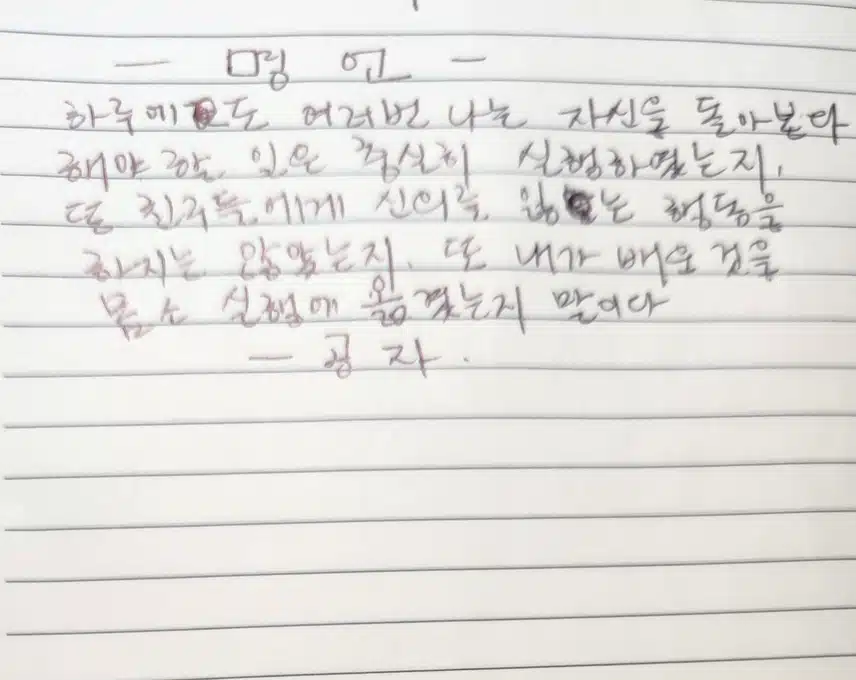 - 명 언 -
하루에도 여러번 나는 자신을 돌아본다
해야 할 일은 충실히 실행하였는지,
또 친구들에게 신의를 잃는 행동을
하지는 않았는지, 또 내가 배운 것을
몸소 실행에 옮겼는지 말이다
- 공 자.